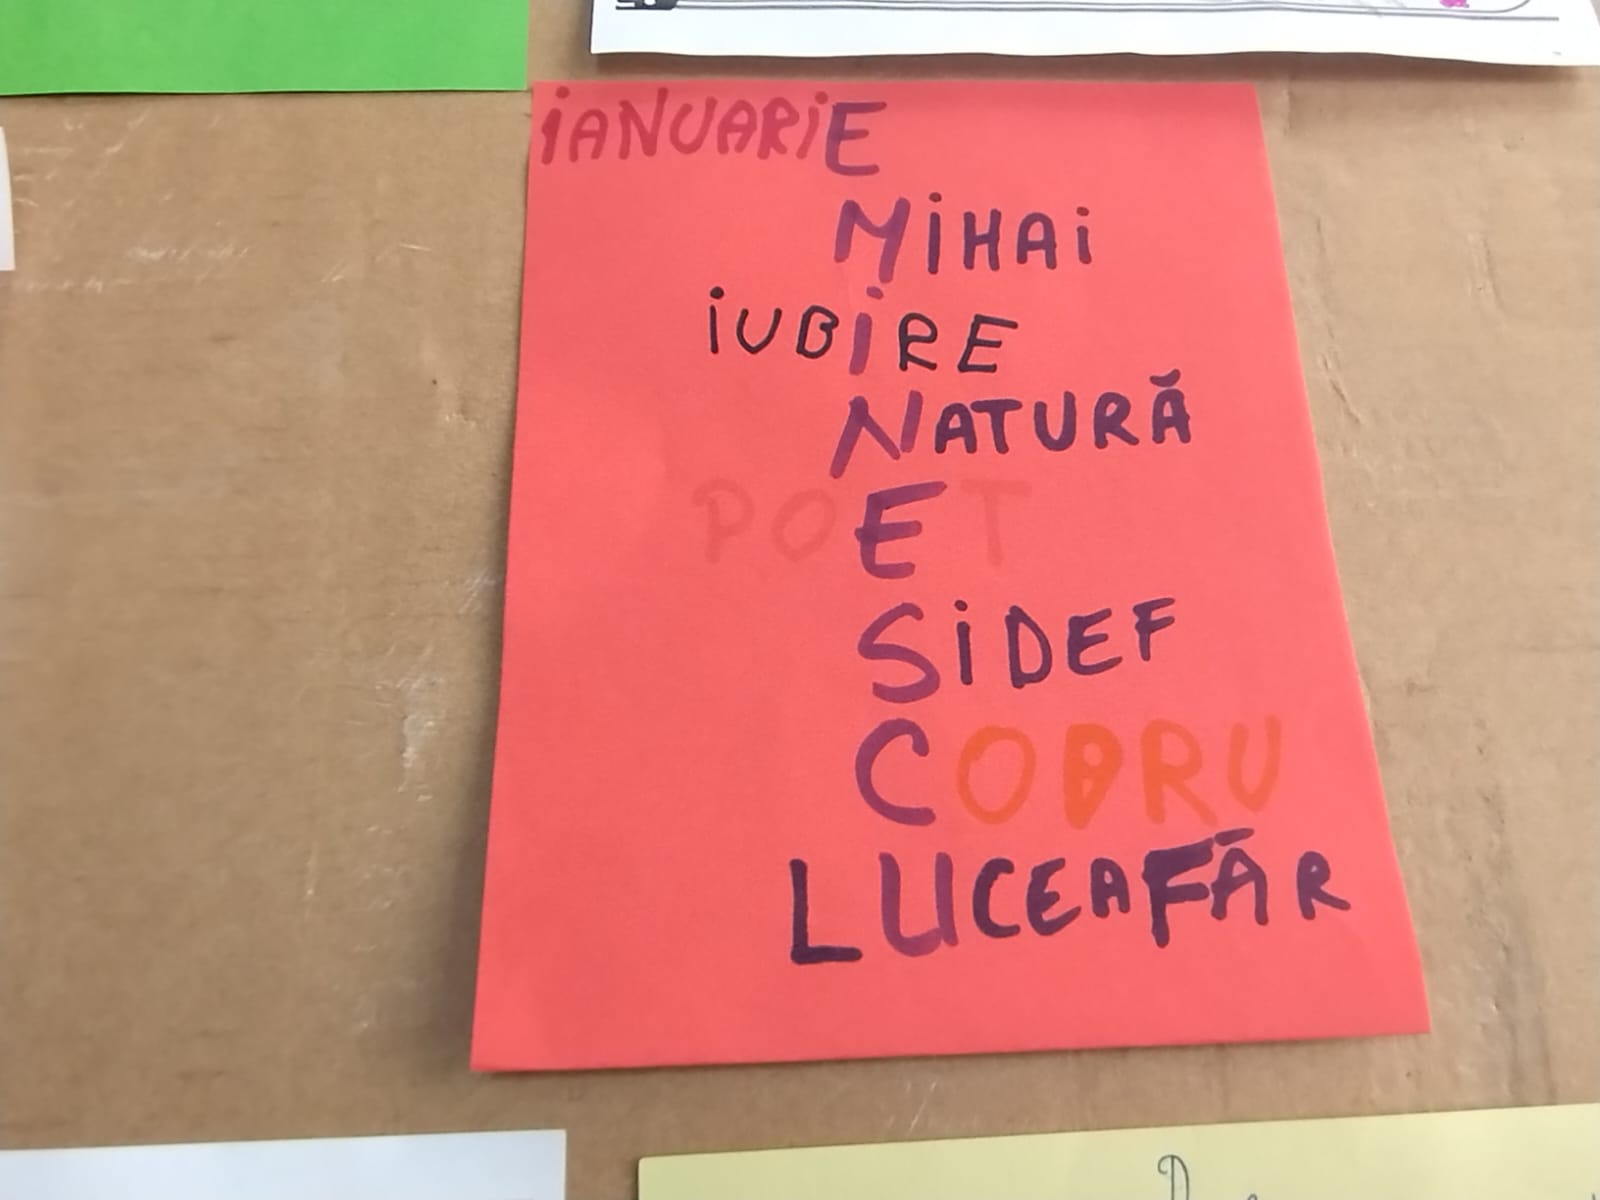 iANUARiE
MiHAi
iUBiRE
NATURĂ
POET
SiDEF
CODRU
LUCEAFĂR